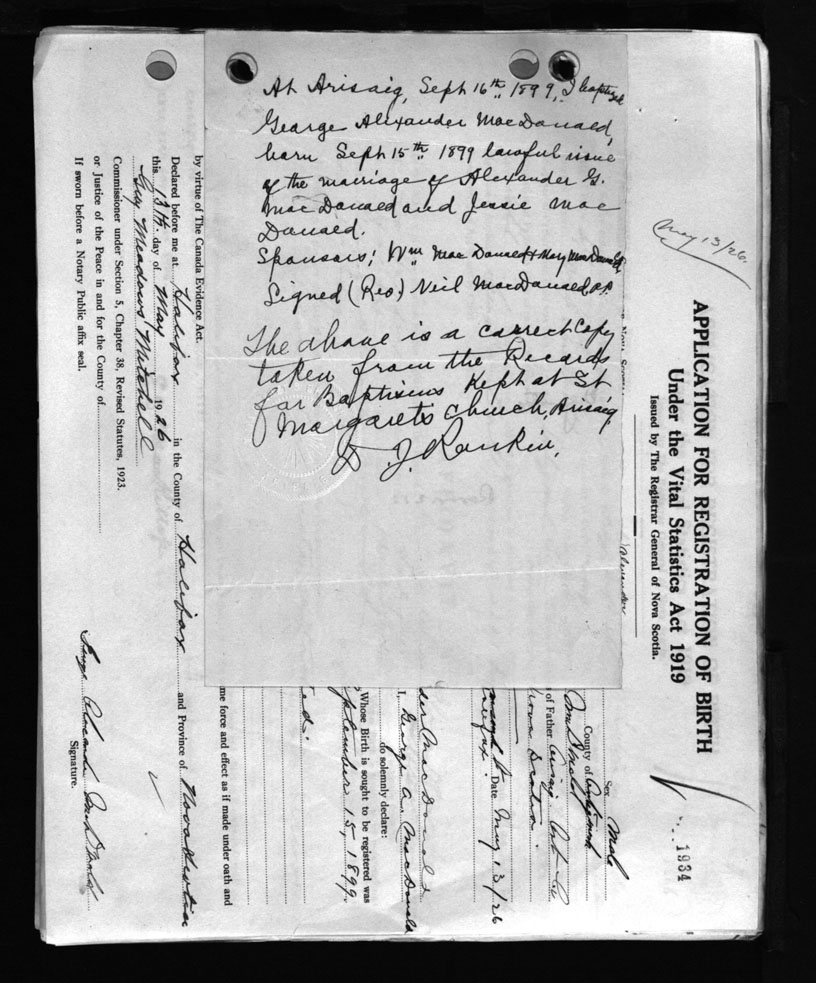 At Arisaig, Sept 16th 1899, I baptized
George Alexander MacDonald,
born Sept 15th 1899 lawful issue
of the marriage of Alexander G.
MacDonald and Jessie Mac
Donald.
Sponsors; Wm MacDonald & Mary MacDonald,
Signed (Rev.) Neil MacDonald, P.P.
The above is a correct Copy
taken from the Records
for Baptisms Kept at St
Margarets Church, Arisaig
D. J. Rankin.
May 13/26.
APPLICATION FOR REGISTRATION OF BIRTH
Under the Vital Statistics Act 1919
Issued by The Registrar General of Nova Scotia.
1934
Alexander
Sex Male
County of Antigonish
of Father
Nova Scotia.
Date May 13/26
Halifax.
der MacDonald
I, George A. MacDonald
do solemnly declare:
Whose Birth is sought to be registered was
September 15, 1899.
ed.
me force and effect as if made under oath and
by virtue of The Canada Evidence Act.
Declared before me at Halifax in the County of Halifax and Province of Nova Scotia
this 13th. day of May 1926
Guy Meadows Mitchell
Commissioner under Section 5, Chapter 38, Revised Statutes, 1923.
or Justice of the Peace in and for the County of
If sworn before a Notary Public affix seal.
George Alexander MacDonald
Signature.